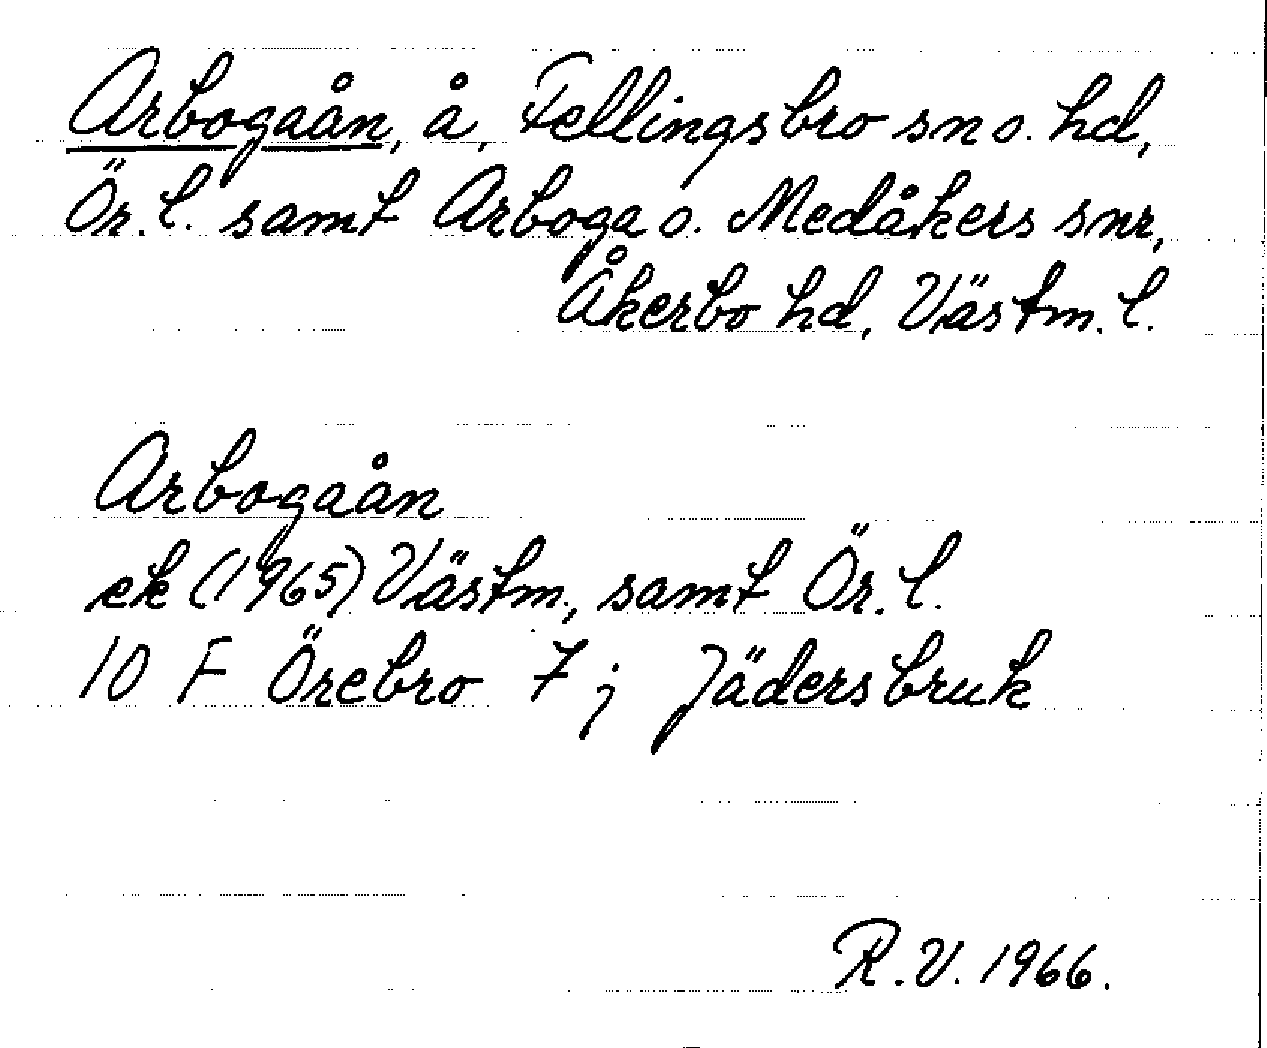 Arbogaån, å, Fellingsbro sn o. hd,
Ör. l. samt Arboga o. Medåkers snr,
Åkerbo hd, Västm. l.
Arbogaån
ek (1965) Västm., samt Ör. l.
10 F Örebro 7 j Jädersbruk
R.V. 1966.